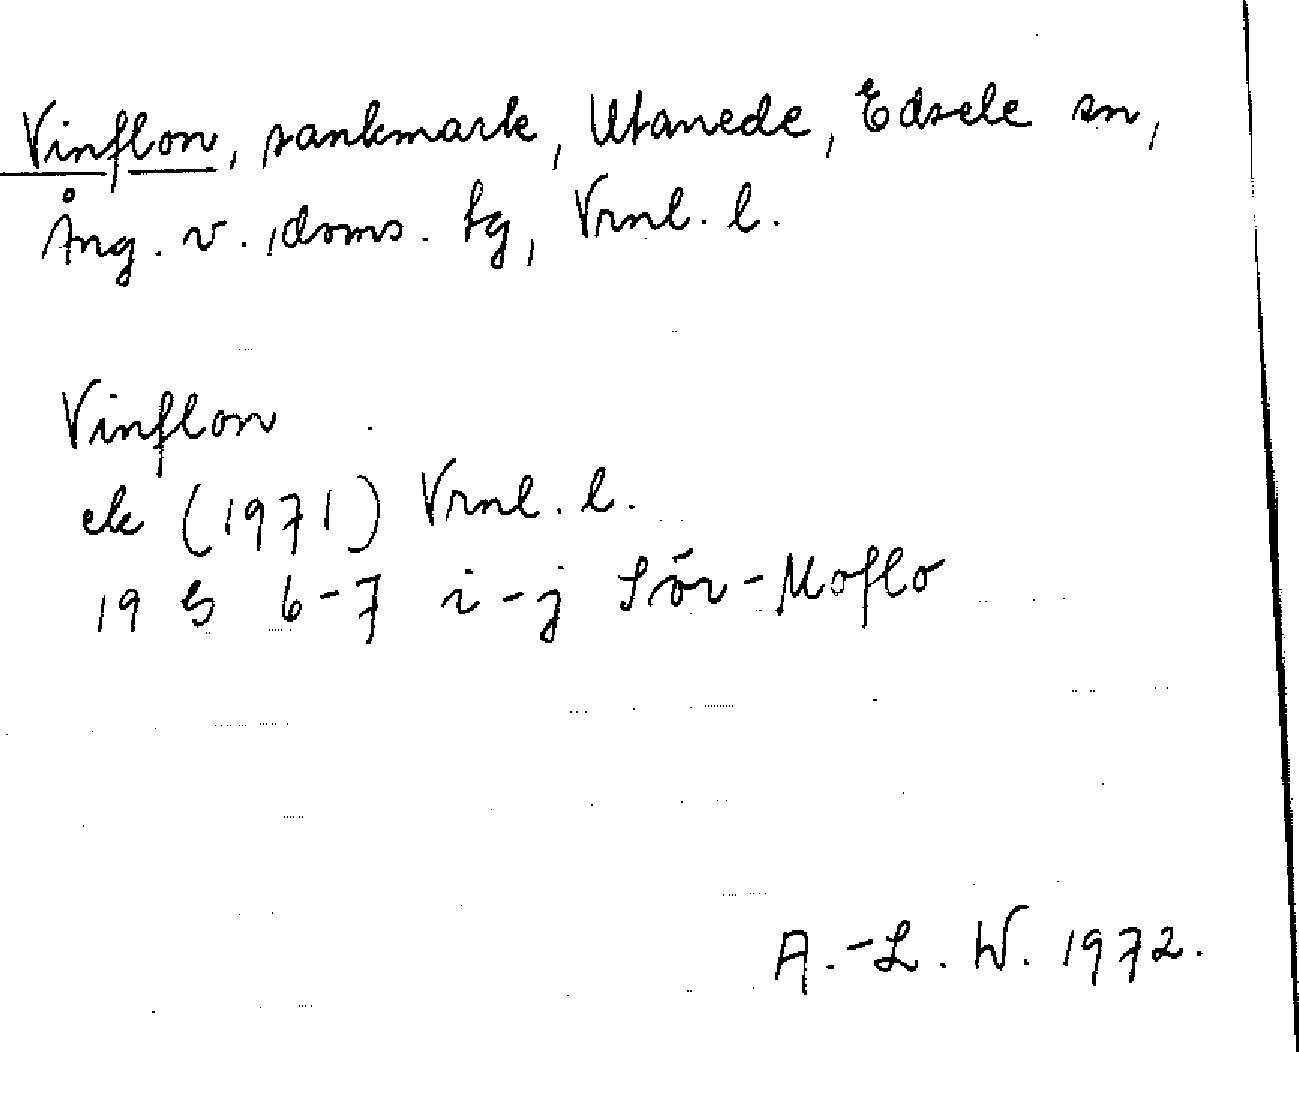 Vinflon, sankmark, Utanede, Edsele sn,
Ång. v. doms. tg, Vrnl. l.
Vinflon
ek (1971) Vrnl. l.
19 G 6-7 i-j Sör-Moflo
A.-L. W. 1972.